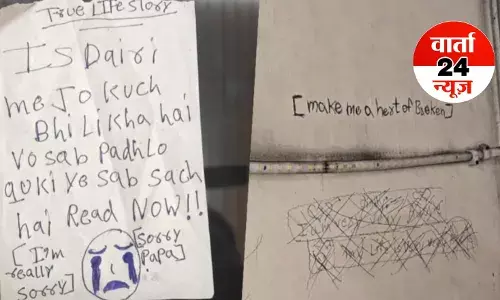 True Life Story
IS Dairi
me Jo kuch
Bhi Likha hai
Vo sab Padhlo
quki ye sab sach
hai Read NOW!!
[I'm
really
sorry]
[sorry
PaPa]
[make me a hert of Broken]
वार्ता
24
न्यूज़